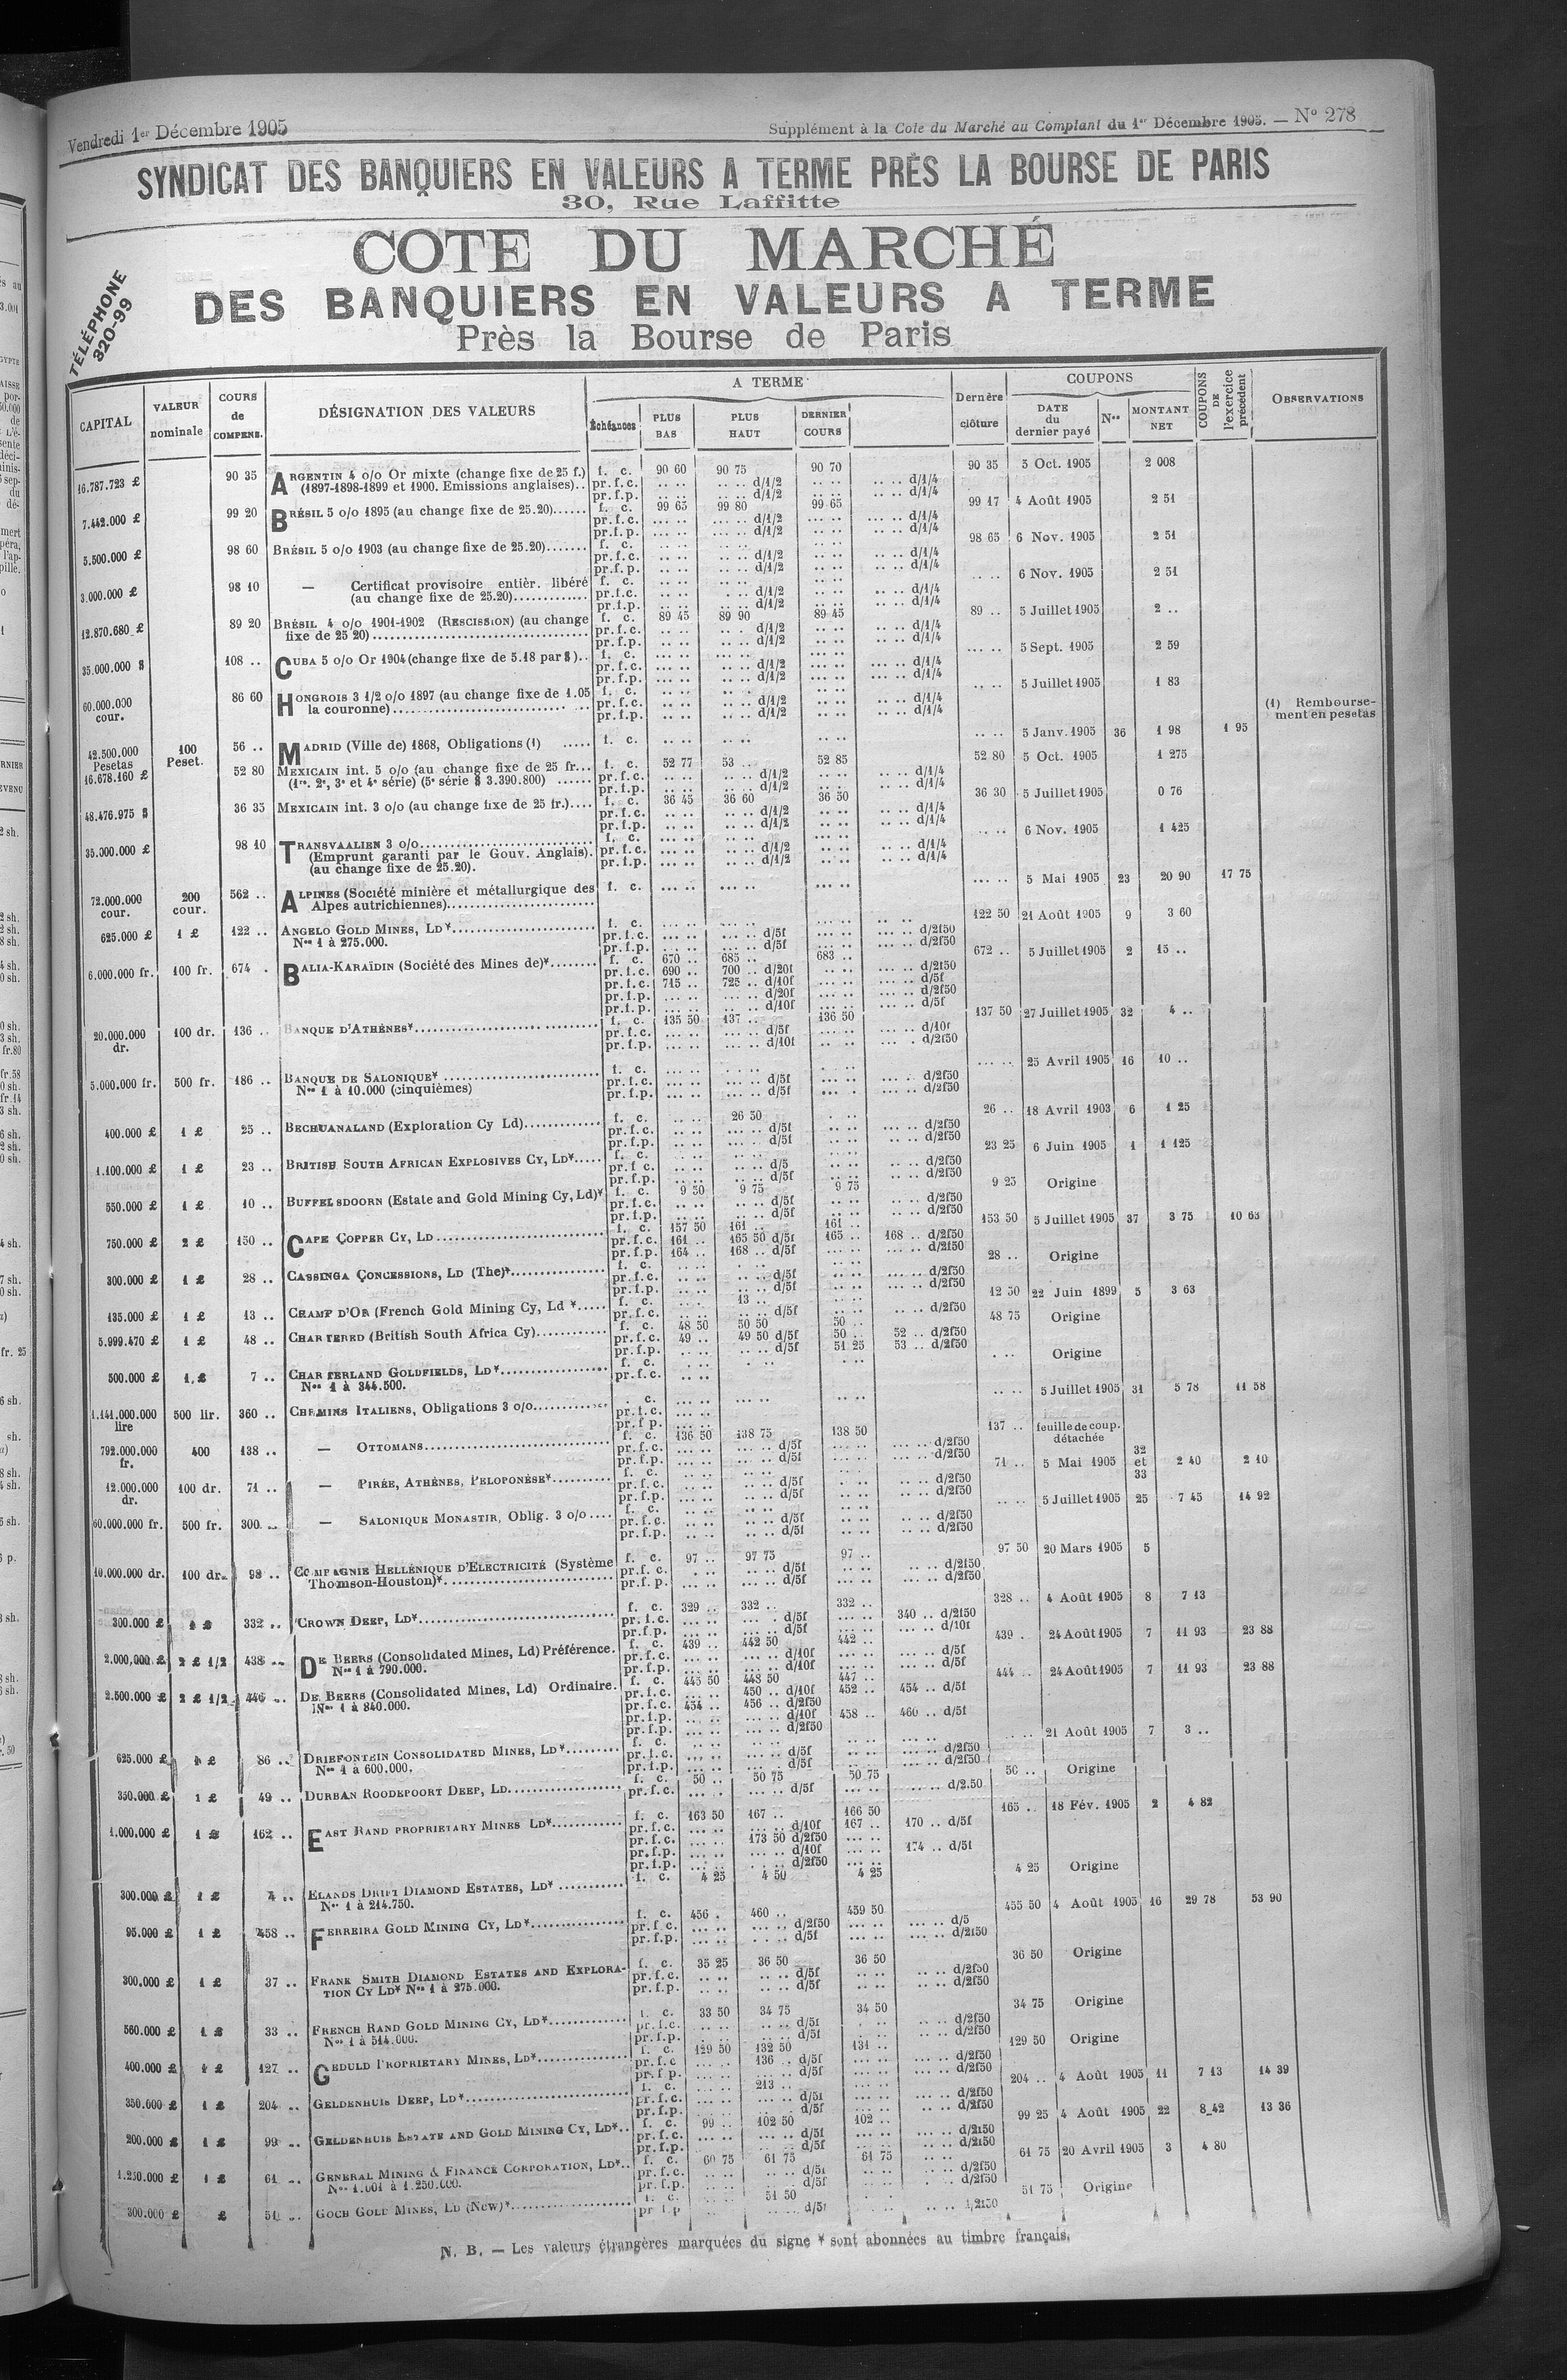 Vendredi 1er Décembre 1905
Supplément à la Cote du Marché au Comptant du 1er Décembre 1905. — No 278
SYNDICAT DES BANQUIERS EN VALEURS A TERME PRÈS LA BOURSE DE PARIS
30, Rue Laffitte
COTE DU MARCHÉ
DES BANQUIERS EN VALEURS A TERME
Près la Bourse de Paris
TÉLÉPHONE
320-99
CAPITAL | VALEUR nominale | COURS de COMPENS. | DÉSIGNATION DES VALEURS | A TERME | Échéances | PLUS BAS | PLUS HAUT | DERNIER COURS | Dernère clôture | COUPONS | DATE du dernier payé | Nos | MONTANT NET | COUPONS DE l'exercice précédent | OBSERVATIONS
16.787.723 £ 90 35 ARGENTIN 4 o/o Or mixte (change fixe de 25 f.) f. c. 90 60 90 75 90 70 90 35 5 Oct. 1905 2 008
(1897-1898-1899 et 1900. Emissions anglaises).. pr.f.c. .. .. .. .. d/1/2 .. .. .. .. d/1/4
pr.f.p. .. .. .. .. d/1/2 .. .. .. .. d/1/4
7.442.000 £ 99 20 BRÉSIL 5 o/o 1895 (au change fixe de 25.20)...... f. c. 99 65 99 80 99 65 99 17 4 Août 1905 2 51
pr.f.c. ... .. ... .. d/1/2 ... .. ... .. d/1/4
pr.f.p. ... .. ... .. d/1/2 .. .. ... .. d/1/4
5.500.000 £ 98 60 BRÉSIL 5 o/o 1903 (au change fixe de 25.20)....... f. c. .. .. .. .. .. .. 98 65 6 Nov. 1905 2 51
pr.f.c. .. .. .. .. d/1/2 .. .. .. .. d/1/4
pr.f.p. .. .. .. .. d/1/2 .. .. .. .. d/1/4
3.000.000 £ 98 10 — Certificat provisoire entièr. libéré f. c. .. .. .. .. .. .. .. .. 6 Nov. 1905 2 51
(au change fixe de 25.20)............. pr.f.c. .. .. . .. d/1/2 .. .. .. .. d/1/4
pr.f.p. .. .. .. .. d/1/2 .. .. .. .. d/1/4
12.870.680 £ 89 20 BRÉSIL 4 o/o 1901-1902 (RESCISSION) (au change f. c. 89 45 89 90 89 45 89 .. 5 Juillet 1905 2 ..
fixe de 25 20)................................... pr.f.c. .. .. .. . d/1/2 .. .. .. .. d/1/4
pr.f.p. .. .. .. .. d/1/2 .. .. .. .. d/1/4
35.000.000 $ 108 .. CUBA 5 o/o Or 1904 (change fixe de 5.18 par $).. f. c. ... .. ... .. ... .. ... .. 5 Sept. 1905 2 59
pr.f.c. ... .. ... .. d/1/2 ... .. ... .. d/1/4
pr.f.p. ... .. ... .. d/1/2 ... .. ... .. d/1/4
60.000.000 cour. 86 60 HONGROIS 3 1/2 o/o 1897 (au change fixe de 1.05 f. c. .. .. .. . .. .. .. .. 5 Juillet 1905 1 83
la couronne)............................. .. pr.f.c. .. .. .. .. d/1/2 .. .. .. .. d/1/4
pr.f.p. .. .. .. .. d/1/2 .. .. .. .. d/1/4
42.500.000 Pesetas 100 Peset. 56 .. MADRID (Ville de) 1868, Obligations (1) ..... f. c. .. .. .. .. .. .. .. .. 5 Janv. 1905 36 1 98 1 95 (1) Remboursement en pesetas
16.678.160 £ 52 80 MEXICAIN int. 5 o/o (au change fixe de 25 fr... f. c. 52 77 53 .. 52 85 52 80 5 Oct. 1905 1 275
(1re. 2e, 3e et 4e série) (5e série $ 3.390.800) ...... pr.f.c. .. .. .. .. d/1/2 .. .. .. .. d/1/4
pr.f.p. .. .. .. .. d/1/2 .. .. .. .. d/1/4
48.476.975 $ 36 35 MEXICAIN int. 3 o/o (au change fixe de 25 fr.).... f. c. 36 45 36 60 36 50 36 30 5 Juillet 1905 0 76
pr.f.c. .. .. .. .. d/1/2 .. .. .. .. d/1/4
pr.f.p. .. .. .. .. d/1/2 .. .. .. .. d/1/4
35.000.000 £ 98 10 TRANSVAALIEN 3 o/o............................ f. c. ... .. ... .. ... .. .. .. 6 Nov. 1905 1 425
(Emprunt garanti par le Gouv. Anglais). pr.f.c. ... .. .. .. d/1/2 .. .. .. .. d/1/4
(au change fixe de 25.20). pr.f.p. ... .. .. .. d/1/2 .. .. .. .. d/1/4
72.000.000 cour. 200 cour. 562 .. ALPINES (Société minière et métallurgique des f. c. ... .. ... .. ... .. ... .. 5 Mai 1905 23 20 90 17 75
Alpes autrichiennes)........................
625.000 £ 1 £ 122 .. ANGELO GOLD MINES, LD*....................... f. c. ... .. ... .. ... .. 122 50 21 Août 1905 9 3 60
Nos 1 à 275.000. pr.f.c. ... .. ... .. d/5f ... .. ... .. d/2f50
pr.f.p. ... .. ... .. d/5f ... .. ... .. d/2f50
6.000.000 fr. 100 fr. 674 . BALIA-KARAÏDIN (Société des Mines de)*........ f. c. 670 .. 685 .. 683 .. 672 .. 5 Juillet 1905 2 15 ..
pr.f.c. 690 .. 700 .. d/20f ... .. d/2f50
pr.f.c. 715 .. 725 .. d/10f ... .. d/5f
pr.f.p. ... .. ... .. d/20f ... .. d/2f50
pr.f.p. ... .. .. .. d/10f ... .. d/5f
20.000.000 dr. 100 dr. 136 .. BANQUE D'ATHÈNES*............................ f. c. 135 50 137 .. 136 50 137 50 27 Juillet 1905 32 4 ..
pr.f.c. ... .. ... .. d/5f ... .. ... .. d/10f
pr.f.p. ... .. ... .. d/10f .. .. ... . d/2f50
5.000.000 fr. 500 fr. 186 .. BANQUE DE SALONIQUE* ........................ f. c. ... .. .. . ... .. ... .. 25 Avril 1905 16 10 ..
Nos 1 à 10.000 (cinquièmes) pr.f.c. ... .. ... .. d/5f ... .. ... . d/2f50
pr.f.p. ... .. ... .. d/5f ... . ... .. d/2f50
400.000 £ 1 £ 25 .. BECHUANALAND (Exploration Cy Ld)............ f. c. .. .. 26 50 . .. 26 .. 18 Avril 1903 6 1 25
pr.f.c. .. .. ... .. d/5f .. .. ... .. d/2f50
pr.f.p. .. .. ... .. d/5f .. .. .. .. d/2f50
1.100.000 £ 1 £ 23 .. BRITISH SOUTH AFRICAN EXPLOSIVES CY, LD*..... f. c. .. .. .. .. .. .. 23 25 6 Juin 1905 1 1 125
pr.f c. .. .. .. .. d/5 .. .. .. .. d/2f50
pr.f.p. .. .. .. .. d/5f .. .. .. .. d/2f50
550.000 £ 1 £ 10 .. BUFFELSDOORN (Estate and Gold Mining Cy, Ld)* f. c. 9 50 9 75 9 75 9 25 Origine
pr.f.c. .. .. .. .. d/5f .. .. .. .. d/2f50
pr.f.p. .. .. .. .. d/5f .. .. .. .. d/2f50
750.000 £ 2 £ 150 .. CAPE COPPER CY, LD........................... f. c. 157 50 161 .. 161 .. 153 50 5 Juillet 1905 37 3 75 10 63
pr.f.c. 161 .. 165 50 d/5f 165 .. 168 .. d/2f50
pr.f.p. 164 .. 168 .. d/5f ... .. ... .. d/2f50
300.000 £ 1 £ 28 .. CASSINGA CONCESSIONS, LD (The)*................ f. c. .. .. . .. .. .. 28 .. Origine
pr.f.c. .. .. ... .. d/5f .. .. ... .. d/2f50
pr.f.p. .. .. .. .. d/5f .. .. ... .. d/2f50
135.000 £ 1 £ 13 .. CHAMP D'OR (French Gold Mining Cy, Ld *..... f. c. .. . 13 .. .. .. 12 50 22 Juin 1899 5 3 63
pr.f.c. .. .. .. .. d/5f .. .. .. .. d/2f50
5.999.470 £ 1 £ 48 .. CHARTERED (British South Africa Cy)............ f. c. 48 50 50 50 50 .. 48 75 Origine
pr.f.c. 49 .. 49 50 d/5f 50 .. 52 .. d/2f50
pr.f.p. .. .. .. .. d/5f 51 25 53 .. d/2f50
500.000 £ 1 £ 7 .. CHARTERLAND GOLDFIELDS, LD*................. f. c. . .. . .. . .. . .. Origine
Nos 1 à 344.500. pr.f.c. .. ..
1.141.000.000 lire 500 lir. 360 .. CHEMINS ITALIENS, Obligations 3 o/o............ . c. ... .. ... .. .. .. .. .. 5 Juillet 1905 31 5 78 11 58
pr.f.c. ... ..
pr.f p. ... ..
792.000.000 fr. 400 138 .. — OTTOMANS............................. f. c. 136 50 138 75 138 50 137 .. feuille de coup. détachée
pr.f.c. ... .. ... .. d/5f ... .. ... .. d/2f50
pr.f.p. ... .. ... .. d/5f ... .. ... .. d/2f50
12.000.000 dr. 100 dr. 71 .. — PIRÉE, ATHÈNES, PELOPONÈSE*.......... f. c. .. .. .. .. .. . 71 .. 5 Mai 1905 32 et 33 2 40 2 10
pr.f.c. ... .. .. .. d/5f . .. .. .. d/2f50
pr.f.p. ... .. .. .. d/5f .. .. .. .. d/2f50
60.000.000 fr. 500 fr. 300 .. — SALONIQUE MONASTIR, Oblig. 3 o/o.... f. c. .. .. .. .. .. .. .. .. 5 Juillet 1905 25 7 45 14 92
pr.f.c. ... .. .. .. d/5f .. .. .. .. d/2f50
pr.f.p. ... .. .. .. d/5f .. .. .. .. d/2f50
10.000.000 dr. 100 dr. 98 .. COMPAGNIE HELLÉNIQUE D'ELECTRICITÉ (Système f. c. 97 .. 97 75 97 .. 97 50 20 Mars 1905 5
Thomson-Houston)*........................... pr.f. c. . .. .. .. d/5f .. .. d/2f50
pr.f. p. ... .. ... .. d/5f ... .. d/2f50
300.000 £ 1 £ 332 .. CROWN DEEP, LD*............................... f. c. 329 .. 332 .. 332 .. 328 .. 4 Août 1905 8 7 13
pr.f.c. ... .. ... . d/5f ... .. 340 .. d/2f50
pr.f.p. ... .. ... .. d/5f ... .. ... .. d/10f
2.000.000 £ 2 £ 1/2 438 .. DE BEERS (Consolidated Mines, Ld) Préférence. f. c. 439 .. 442 50 442 .. 439 . 24 Août 1905 7 11 93 23 88
Nos 1 à 790.000. pr.f.c. ... .. ... .. d/10f ... .. ... .. d/5f
pr.f.p. ... .. ... .. d/10f ... .. ... .. d/5f
2.500.000 £ 2 £ 1/2 446 .. DE BEERS (Consolidated Mines, Ld) Ordinaire. f. c. 445 50 448 50 447 .. 444 .. 24 Août 1905 7 11 93 23 88
Nos 1 à 840.000. pr.f.c. ... .. 450 .. d/10f 452 .. 454 .. d/5f
pr.f.c. 454 .. 456 .. d/2f50
pr.f.p. ... .. ... .. d/10f 458 .. 460 .. d/5f
pr.f.p. ... .. ... .. d/2f50
625.000 £ 1 £ 86 .. DRIEFONTEIN CONSOLIDATED MINES, LD*......... f. c. ... .. .. .. ... .. .. .. 21 Août 1905 7 3 ..
Nos 1 à 600.000. pr.f.c. ... .. ... .. d/5f ... .. ... .. d/2f50
pr.f.p. ... .. ... .. d/5f ... .. ... .. d/2f50
350.000 £ 1 £ 49 .. DURBAN ROODEPOORT DEEP, LD.................. f. c. 50 .. 50 75 50 75 50 .. Origine
pr.f.c. ... .. ... .. d/5f ... .. ... .. d/2.50
1.000.000 £ 1 £ 162 .. EAST RAND PROPRIETARY MINES LD*............ f. c. 163 50 167 .. 166 50 165 .. 18 Fév. 1905 2 4 82
pr.f.c. ... .. ... .. d/10f 167 .. 170 .. d/5f
pr.f.c. ... .. 173 50 d/2f50 ... ..
pr.f.p. ... .. ... .. d/10f ... .. 174 .. d/5f
pr.f.p. ... .. . .. d/2f50 ... ..
300.000 £ 1 £ 4 .. ELANDS DRIFT DIAMOND ESTATES, LD* ........... f. c. 4 25 4 50 4 25 4 25 Origine
Nos 1 à 214.750.
95.000 £ 1 £ 458 .. FERREIRA GOLD MINING CY, LD*................. f. c. 456 . 460 .. 459 50 455 50 4 Août 1905 16 29 78 53 90
pr.f c. ... .. ... .. d/2f50 ... .. ... .. d/5
pr.f.p. ... .. . .. d/5f ... .. ... .. d/2f50
300.000 £ 1 £ 37 .. FRANK SMITH DIAMOND ESTATES AND EXPLORA- f. c. 35 25 36 50 36 50 36 50 Origine
TION CY LD* Nos 1 à 275.000. pr.f.c. .. .. .. .. d/5f .. .. .. .. d/2f50
pr.f.p. .. .. .. .. d/5f .. .. .. .. d/2f50
560.000 £ 1 £ 33 .. FRENCH RAND GOLD MINING CY, LD*............. f. c. 33 50 34 75 34 50 34 75 Origine
Nos 1 à 514.000. pr.f.c. .. .. .. .. d/5f . .. .. .. d/2f50
pr.f.p. . .. .. .. d/5f . .. .. .. d/2f50
400.000 £ 1 £ 127 .. GEDULD PROPRIETARY MINES, LD*............... f. c. 129 50 132 50 131 .. 129 50 Origine
pr.f.c ... .. 136 .. d/5f ... .. ... .. d/2f50
pr.f p. ... .. ... .. d/5f ... .. ... .. d/2f50
350.000 £ 1 £ 204 .. GELDENHUIS DEEP, LD*......................... f. c. ... .. 213 .. ... .. 204 .. 4 Août 1905 11 7 13 14 39
pr.f.c. ... .. ... .. d/5f ... .. ... .. d/2f50
pr.f.p. ... .. ... .. d/5f ... .. .. .. d/2f50
200.000 £ 1 £ 99 .. GELDENHUIS ESTATE AND GOLD MINING CY, LD*.. f. c. 99 .. 102 50 102 .. 99 25 4 Août 1905 22 8 42 13 36
pr.f.c. ... .. ... .. d/5f ... .. ... .. d/2f50
pr.f.p. ... .. ... .. d/5f ... .. ... .. d/2f50
1.250.000 £ 1 £ 61 .. GENERAL MINING & FINANCE CORPORATION, LD*.. f. c. 60 75 61 75 61 75 61 75 20 Avril 1905 3 4 80
Nos 1.001 à 1.250.000. pr.f.c. .. .. .. .. d/5f .. .. .. .. d/2f50
pr.f.p. .. .. .. .. d/5f .. . .. .. d/2f50
300.000 £ £ 50 .. GOCH GOLD MINES, LD (New)*.................. f. c. .. .. 51 50 .. .. 51 75 Origine
pr f.p .. .. .. .. d/5f
N. B. — Les valeurs étrangères marquées du signe * sont abonnées au timbre français.